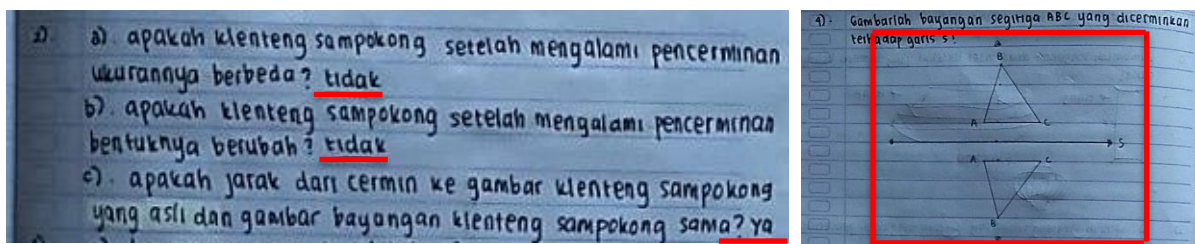 2). a). apakah klenteng sampokong setelah mengalami pencerminan
ukurannya berbeda? tidak
b). apakah klenteng sampokong setelah mengalami pencerminan
bentuknya berubah? tidak
c). apakah jarak dari cermin ke gambar klenteng sampokong
yang asli dan gambar bayangan klenteng sampokong sama? ya
4). Gambarlah bayangan segitiga ABC yang dicerminkan
terhadap garis s!
B
A
C
S
A
C
B